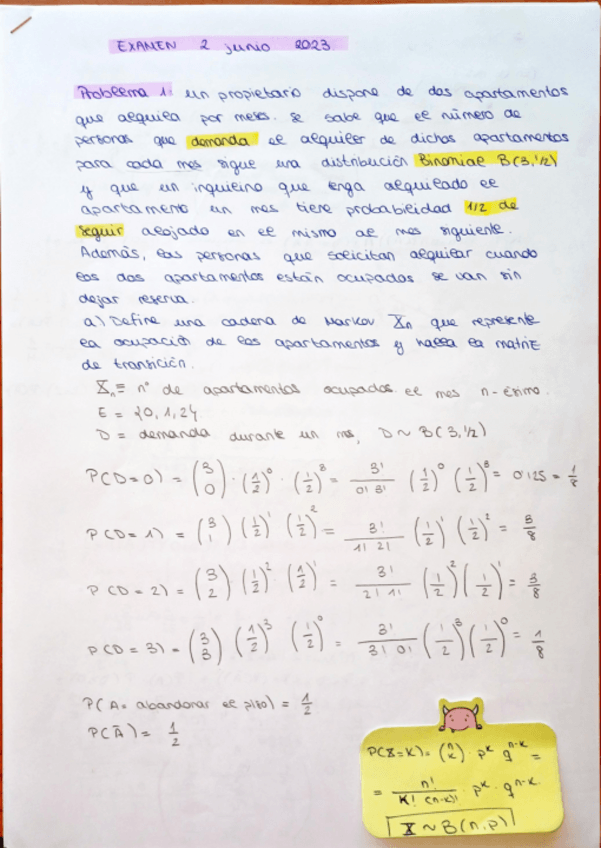 EXAMEN 2 junio 2023
Problema 1: un propietario dispone de dos apartamentos
que alquila por meses. Se sabe que el número de
personas que demanda el alquiler de dichos apartamentos
para cada mes sigue una distribución Binomial B(3,1/2)
y que un inquilino que tenga alquilado el
apartamento un mes tiene probabilidad 1/2 de
seguir alojado en el mismo al mes siguiente.
Además, las personas que solicitan alquilar cuando
los dos apartamentos están ocupados se van sin
dejar reserva.
a) Define una cadena de Markov Xn que represente
la ocupación de los apartamentos y halla la matriz
de transición.
Xn = nº de apartamentos ocupados el mes n-ésimo.
E = {0,1,2}
D = demanda durante un mes, D ~ B(3,1/2)
P(D=0) = (3 0) · (1/2)^0 · (1/2)^3 = 3!/(0! 3!) (1/2)^0 (1/2)^3 = 0'125 = 1/8
P(D=1) = (3 1) (1/2)^1 (1/2)^2 = 3!/(1! 2!) (1/2)^1 (1/2)^2 = 3/8
P(D=2) = (3 2) (1/2)^2 (1/2)^1 = 3!/(2! 1!) (1/2)^2 (1/2)^1 = 3/8
P(D=3) = (3 3) (1/2)^3 (1/2)^0 = 3!/(3! 0!) (1/2)^3 (1/2)^0 = 1/8
P(A = abandonar el piso) = 1/2
P(Ā) = 1/2
P(X=K) = (n K) · p^K q^(n-K) =
= n!/(K! (n-K)!) · p^K · q^(n-K)
X ~ B(n,p)